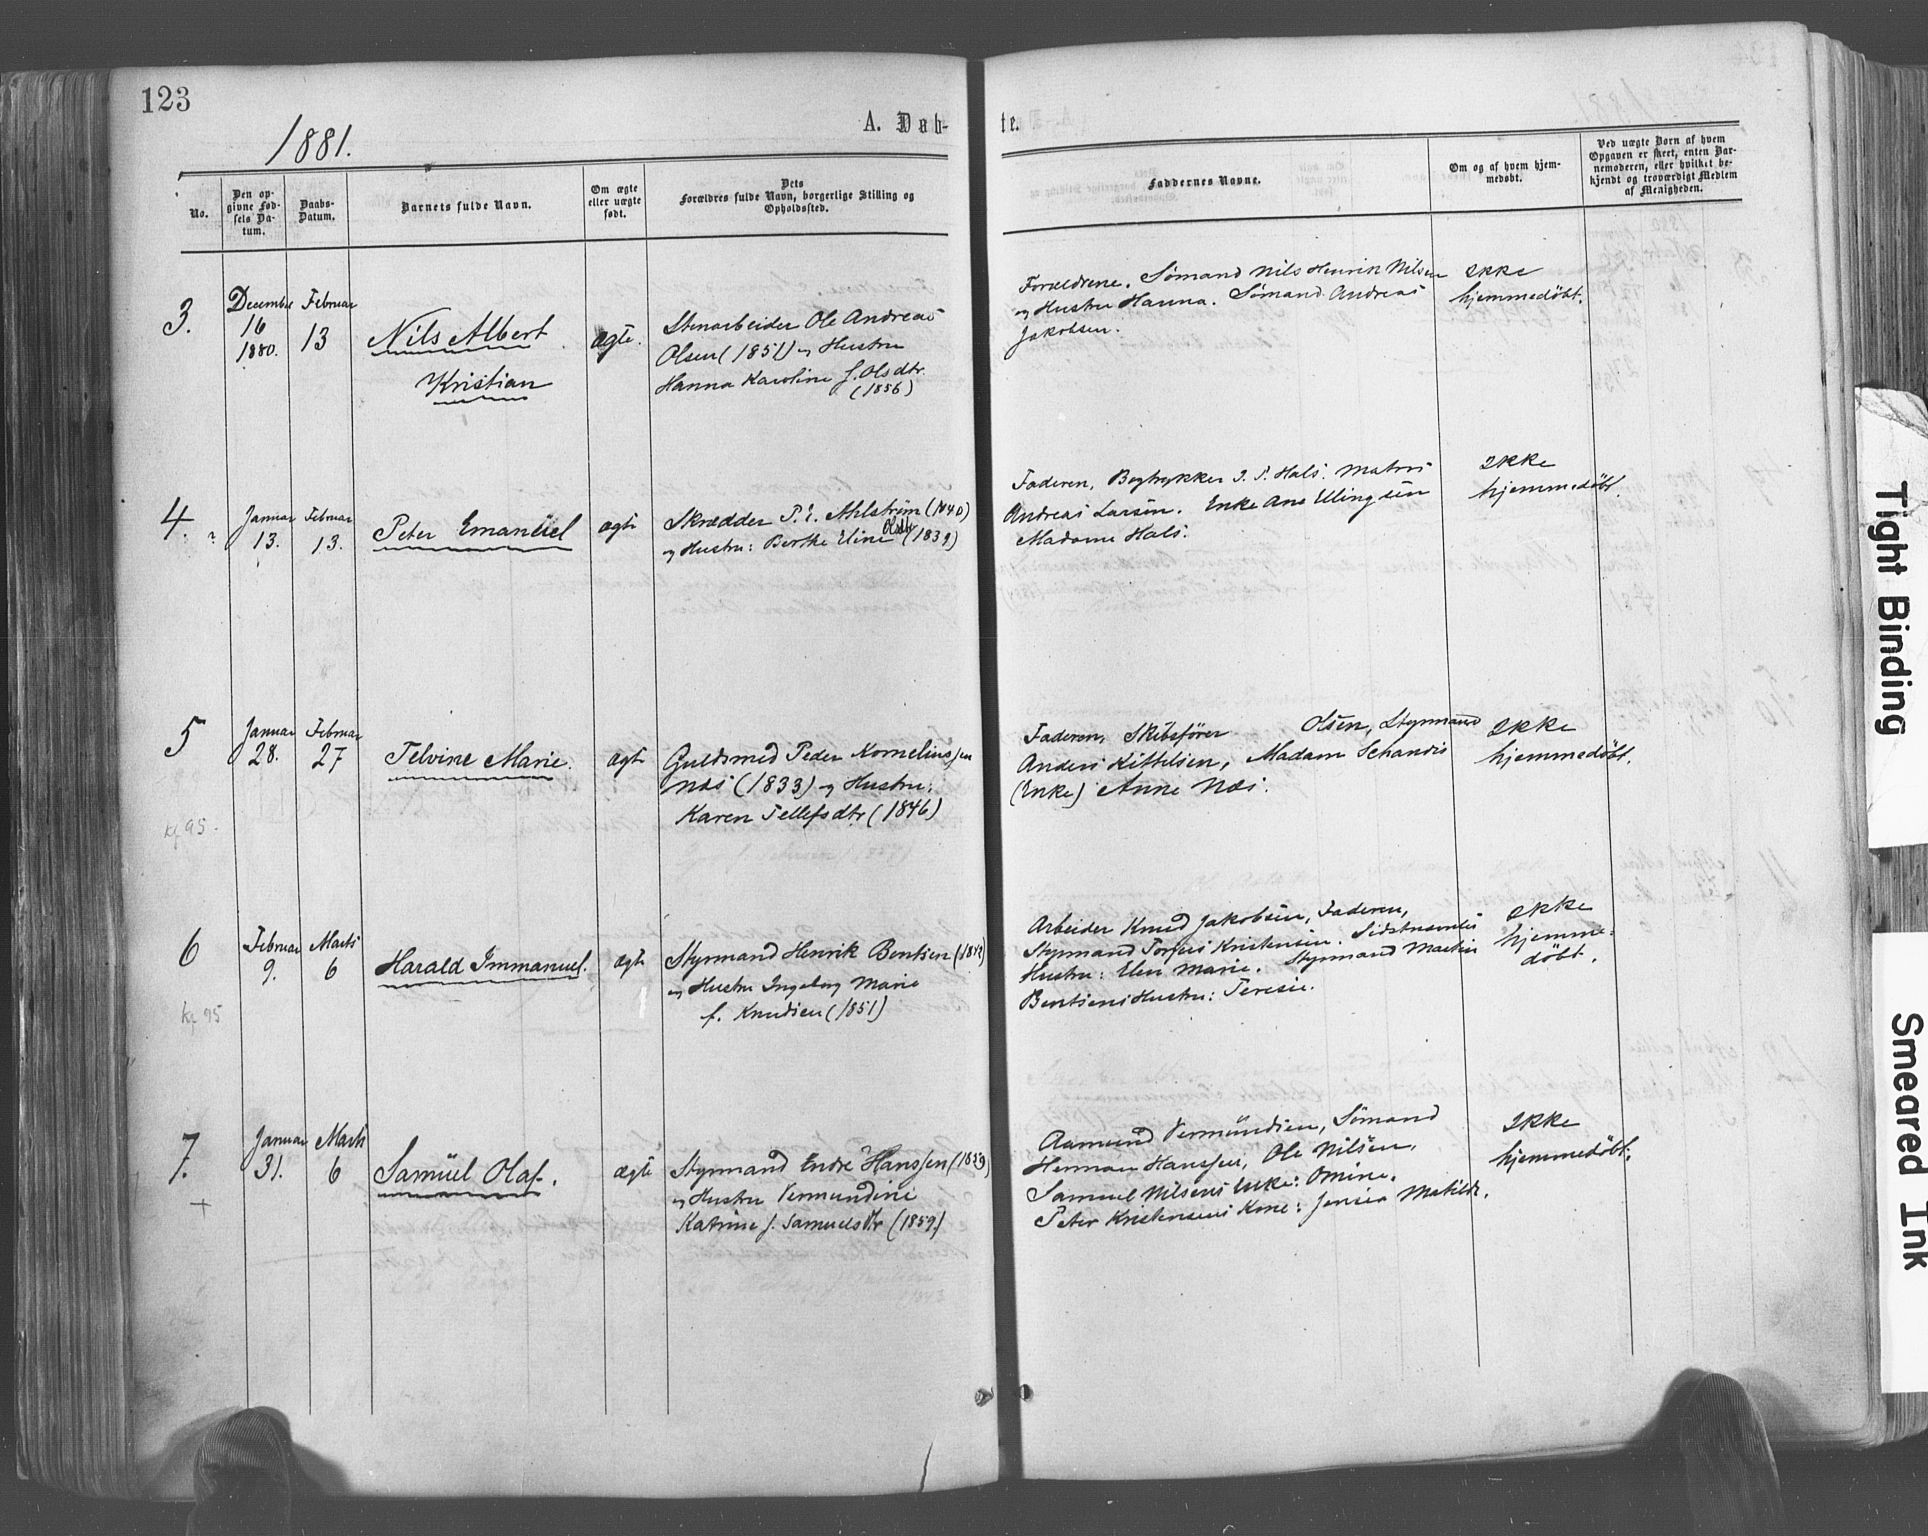 123
1881.
A. Døb-
te.
No.
Den op-
givne Fød-
sels Da-
tum.
Daabs-
Datum.
Barnets fulde Navn.
Om ægte
eller uægte
født.
Dets
Forældres fulde Navn, borgerlige Stilling og
Opholdssted.
Faddernes Navne.
Om og af hvem hjem-
medøbt.
Ved uægte Børn af hvem
Opgaven er skeet, enten Bar-
nemoderen, eller hvilket be-
kjendt og troværdigt Medlem
af Menigheden.
3.
December
16
1880.
Februar
13
Nils Albert
Kristian
ægte.
Stenarbeider Ole Andreas
Olsen (1851) og Hustru
Hanna Karoline f. Olsdtr.
(1856)
Forældrene. Sømand Nils Henrik Nilsen
og Hustru Hanna. Sømand Andreas
Jakobsen.
Ikke
hjemmedøbt.
4.
Januar
13.
Februar
13.
Peter Emanuel
ægte
Skrædder P. E. Ahlstrøm (1840)
og Hustru: Berthe Eline Olsdtr (1839)
Faderen, Bogtrykker J. P. Hals. Matros
Andreas Larsen. Enke Ane Ellingsen
Madame Hals.
Ikke
hjemmedøbt.
5
Januar
28.
Februar
27
Telvine Marie.
ægte
Guldsmed Peder Kornelinssen
Næs (1833) og Hustru:
Karen Tellefsdtr (1846)
Faderen, Skibsfører Olsen, Styrmand
Anders Kittilsen, Madam Schandis
(Enke) Anne Næs.
Ikke
hjemmedøbt.
kf 95.
6
Februar
9.
Marts
6
Harald Immanuel.
ægte
Styrmand Henrik Bentsen (1849)
og Hustru Ingeborg Marie
f. Knudsen (1851)
Arbeider Knud Jakobsen, Faderen,
Styrmand Torjus Kristensen. Sidstnævntes
Hustru: Elen Marie. Styrmand Martin
Bentsens Hustru: Terese.
Ikke
hjemme-
døbt.
kf 95
7.
Januar
31.
Marts
6
Samuel Olaf.
ægte
Styrmand Endre Hanssen (1853)
og Hustru Vermundine
Katrine f. Samuelsdtr (1859)
Aamund Vermundsen, Sømand
Herman Hanssen, Ole Nilsen.
Samuel Nilsens Enke: Omine.
Peter Kristensens Kone: Jensea Matilde.
Ikke
hjemmedøbt.
Tight Binding
Smeared Ink